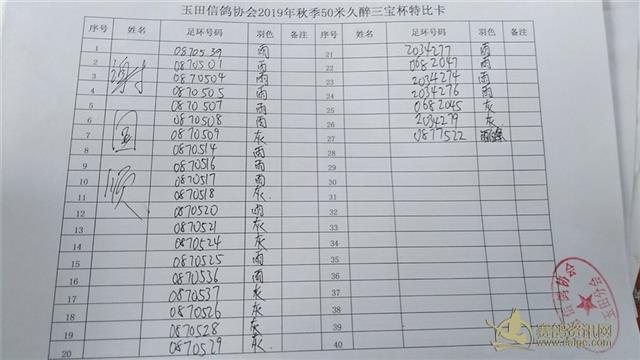 玉田信鸽协会2019年秋季50米久醉三宝杯特比卡
序号 姓名 足环号码 羽色 备注 序号 姓名 足环号码 羽色 备注
1 0870539 雨 21 2034277 雨
2 0870501 雨 22 0682047 雨
3 谢 0870504 雨 23 2034274 雨
4 0870505 雨 24 2034276 雨
5 0870507 雨 25 0682045 灰
6 0870508 雨 26 2034279 灰
7 国 0870509 灰 27 0877522
8 0870514 雨 28
9 0870516 雨 29
10 顺 0870517 雨 30
11 0870518 灰 31
12 0870520 雨 32
13 0870521 灰 33
14 0870524 灰 34
15 0870525 雨 35
16 0870536 雨 36
17 0870537 灰 37
18 0870526 灰 38
19 0870528 灰 39
20 0870529 灰 40
赛鸽资讯网